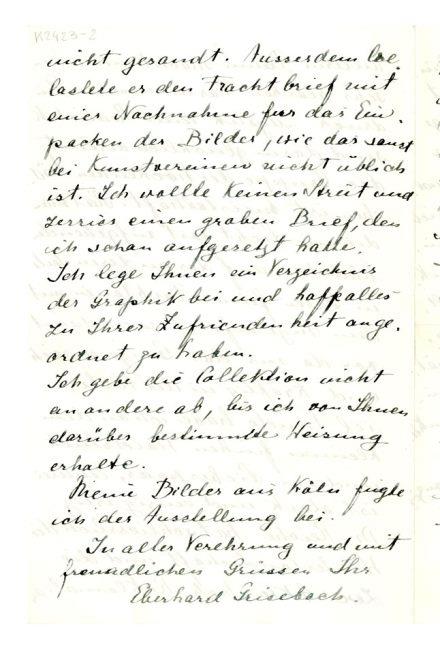 K2423-2
nicht gesandt. Ausserdem be
lastete er den Frachtbrief mit
einer Nachnahme fur das Ein-
packen der Bilder, wie das sonst
bei Kunstvereinen nicht üblich
ist. Ich wollte keinen Streit und
zerriss einen groben Brief, den
ich schon aufgesetzt hatte.
Ich lege Ihnen ein Verzeichnis
der Graphik bei und hoffe alles
zu Ihrer Zufriedenheit ange-
ordnet zu haben.
Ich gebe die Collektion nicht
an andere ab, bis ich von Ihnen
darüber bestimmte Weisung
erhalte.
Meine Bilder aus Köln fügte
ich der Ausstellung bei.
In aller Verehrung und mit
freundlichen Grüssen Ihr
Eberhard Grisebach.